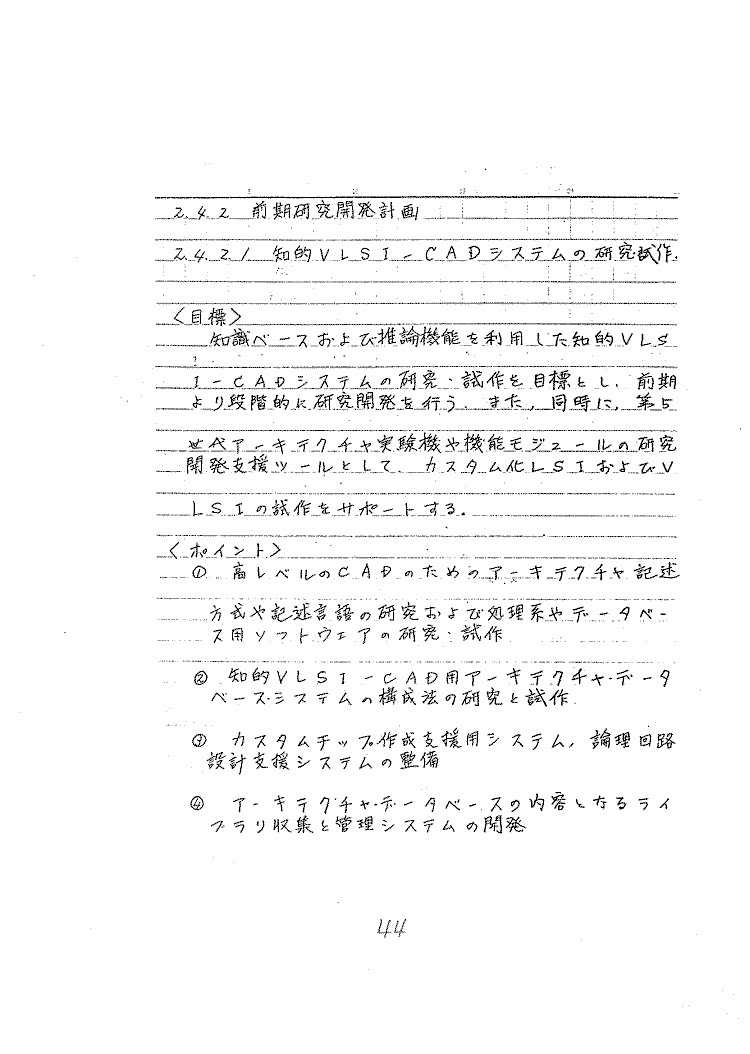 2.4.2 前期研究開発計画
2.4.2.1 知的VLSI-CADシステムの研究試作.
<目標>
知識ベースおよび推論機能を利用した知的VLS
I-CADシステムの研究・試作を目標とし、前期
より段階的に研究開発を行う. また, 同時に, 第5
世代アーキテクチャ実験機や機能モジュールの研究
開発支援ツールとして、カスタム化LSIおよびV
LSIの試作をサポートする.
<ポイント>
① 高レベルのCADのためのアーキテクチャ記述
方式や記述言語の研究および処理系やデータベー
ス用ソフトウェアの研究・試作
② 知的VLSI-CAD用アーキテクチャ・データ
ベース・システムの構成法の研究と試作.
③ カスタムチップ作成支援用システム, 論理回路
設計支援システムの整備
④ アーキテクチャ・データベースの内容となるライ
ブラリ収集と管理システムの開発
44